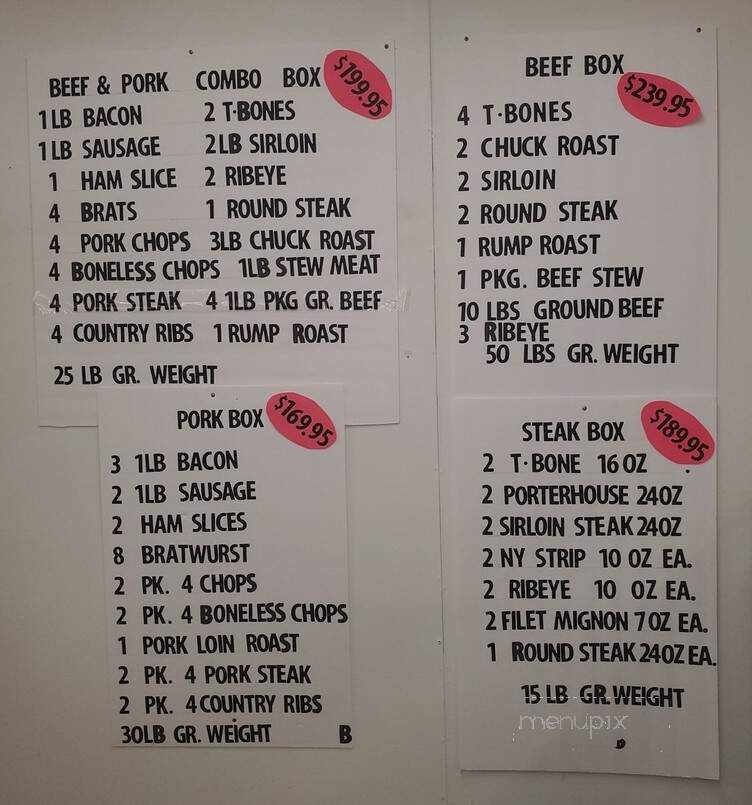 BEEF & PORK COMBO BOX
$199.95
1LB BACON 2 T·BONES
1LB SAUSAGE 2LB SIRLOIN
1 HAM SLICE 2 RIBEYE
4 BRATS 1 ROUND STEAK
4 PORK CHOPS 3LB CHUCK ROAST
4 BONELESS CHOPS 1LB STEW MEAT
4 PORK STEAK 4 1LB PKG GR. BEEF
4 COUNTRY RIBS 1 RUMP ROAST
25 LB GR. WEIGHT
BEEF BOX
$239.95
4 T·BONES
2 CHUCK ROAST
2 SIRLOIN
2 ROUND STEAK
1 RUMP ROAST
1 PKG. BEEF STEW
10 LBS GROUND BEEF
3 RIBEYE
50 LBS GR. WEIGHT
PORK BOX
$169.95
3 1LB BACON
2 1LB SAUSAGE
2 HAM SLICES
8 BRATWURST
2 PK. 4 CHOPS
2 PK. 4 BONELESS CHOPS
1 PORK LOIN ROAST
2 PK. 4 PORK STEAK
2 PK. 4 COUNTRY RIBS
30LB GR. WEIGHT B
STEAK BOX
$189.95
2 T·BONE 16 OZ
2 PORTERHOUSE 24OZ
2 SIRLOIN STEAK 24OZ
2 NY STRIP 10 OZ EA.
2 RIBEYE 10 OZ EA.
2 FILET MIGNON 7 OZ EA.
1 ROUND STEAK 24OZ EA.
15 LB GR. WEIGHT
menupix